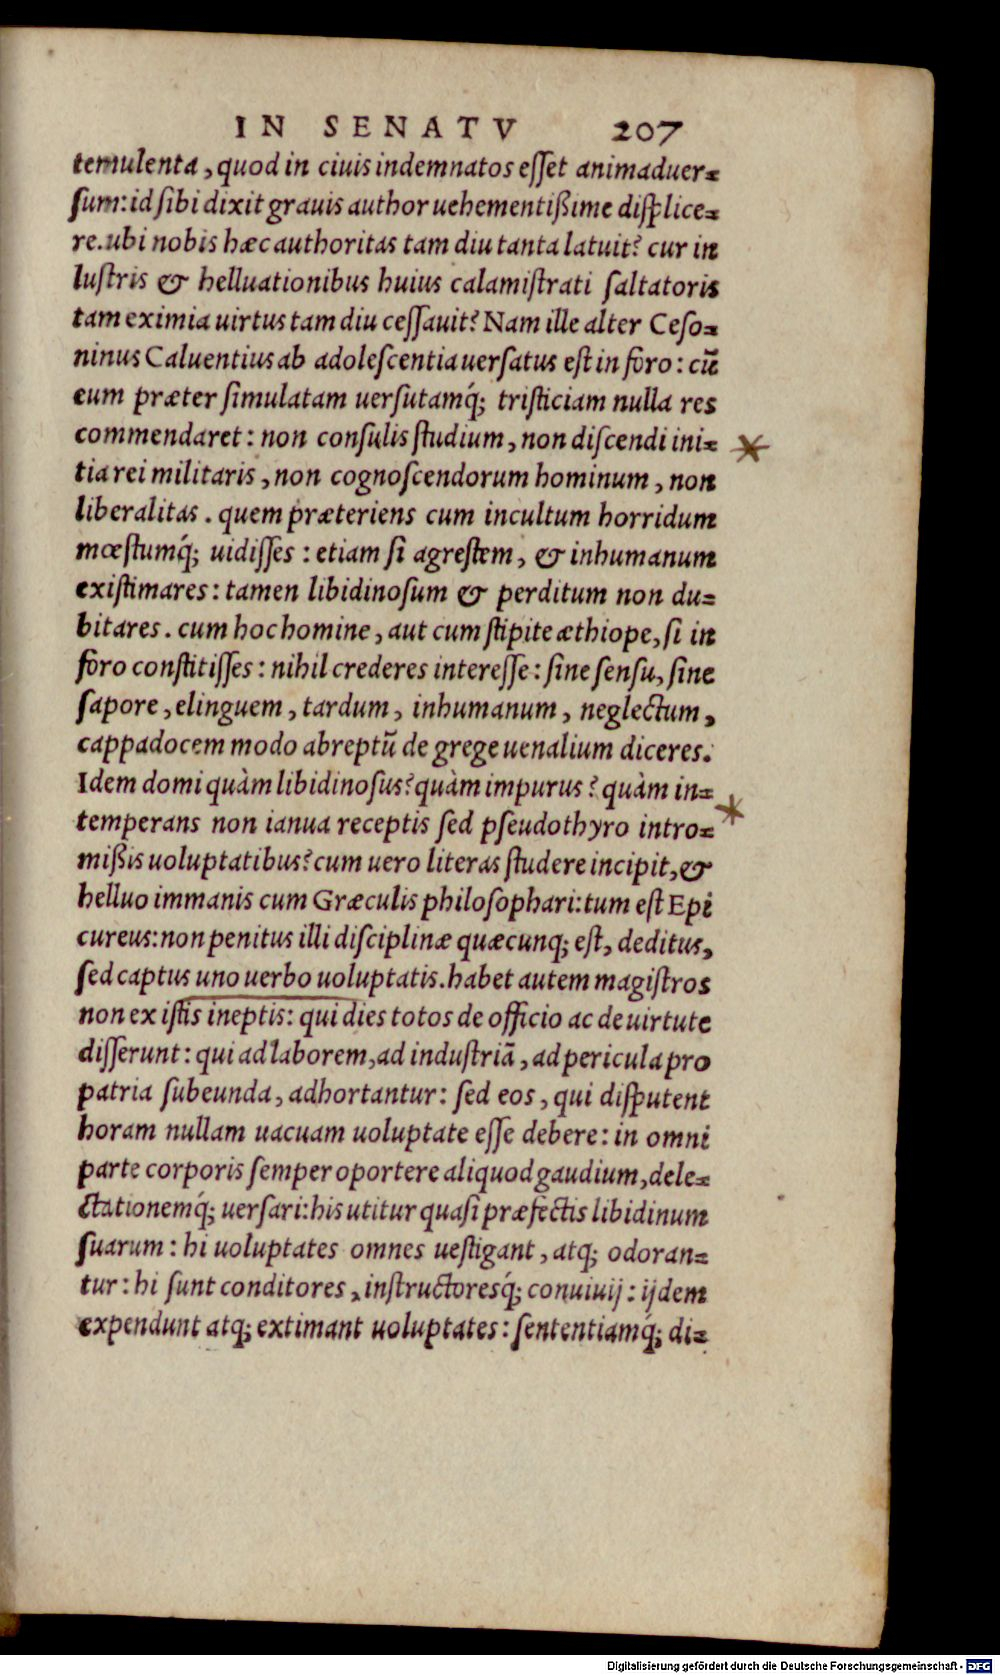 IN SENATV 207
temulenta, quod in ciuis indemnatos eſſet animaduer⸗
ſum: id ſibi dixit grauis author uehementißime diſplice⸗
re. ubi nobis hæc authoritas tam diu tanta latuit? cur in
luſtris & helluationibus huius calamiſtrati ſaltatoris
tam eximia uirtus tam diu ceſſauit? Nam ille alter Ceſo⸗
ninus Caluentius ab adoleſcentia uerſatus eſt in foro: cū
eum præter ſimulatam uerſutamq́; triſticiam nulla res
commendaret: non conſulis ſtudium, non diſcendi ini⸗
tia rei militaris, non cognoſcendorum hominum, non
liberalitas. quem præteriens cum incultum horridum
mœſtumq́; uidiſſes: etiam ſi agreſtem, & inhumanum
exiſtimares: tamen libidinoſum & perditum non du⸗
bitares. cum hoc homine, aut cum ſtipite æthiope, ſi in
foro conſtitiſſes: nihil crederes intereſſe: ſine ſenſu, ſine
ſapore, elinguem, tardum, inhumanum, neglectum,
cappadocem modo abreptū de grege uenalium diceres.
Idem domi quàm libidinoſus? quàm impurus? quàm in⸗
temperans non ianua receptis ſed pſeudothyro intro⸗
mißis uoluptatibus? cum uero literas ſtudere incipit, &
helluo immanis cum Græculis philoſophari: tum eſt Epi
cureus: non penitus illi diſciplinæ quæcunq; eſt, deditus,
ſed captus uno uerbo uoluptatis. habet autem magiſtros
non ex iſtis ineptis: qui dies totos de officio ac de uirtute
diſſerunt: qui ad laborem, ad induſtriã, ad pericula pro
patria ſubeunda, adhortantur: ſed eos, qui diſputent
horam nullam uacuam uoluptate eſſe debere: in omni
parte corporis ſemper oportere aliquod gaudium, dele⸗
ctationemq́; uerſari: his utitur quaſi præfectis libidinum
ſuarum: hi uoluptates omnes ueſtigant, atq; odoran⸗
tur: hi ſunt conditores, inſtructoresq́; conuiuij: ijdem
expendunt atq; extimant uoluptates: ſententiamq́; di⸗
Digitalisierung gefördert durch die Deutsche Forschungsgemeinschaft - DFG